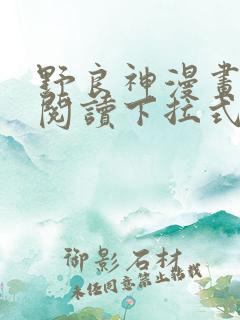 野良神漫畫
閱讀下拉式
御影石材
未经同意禁止转载